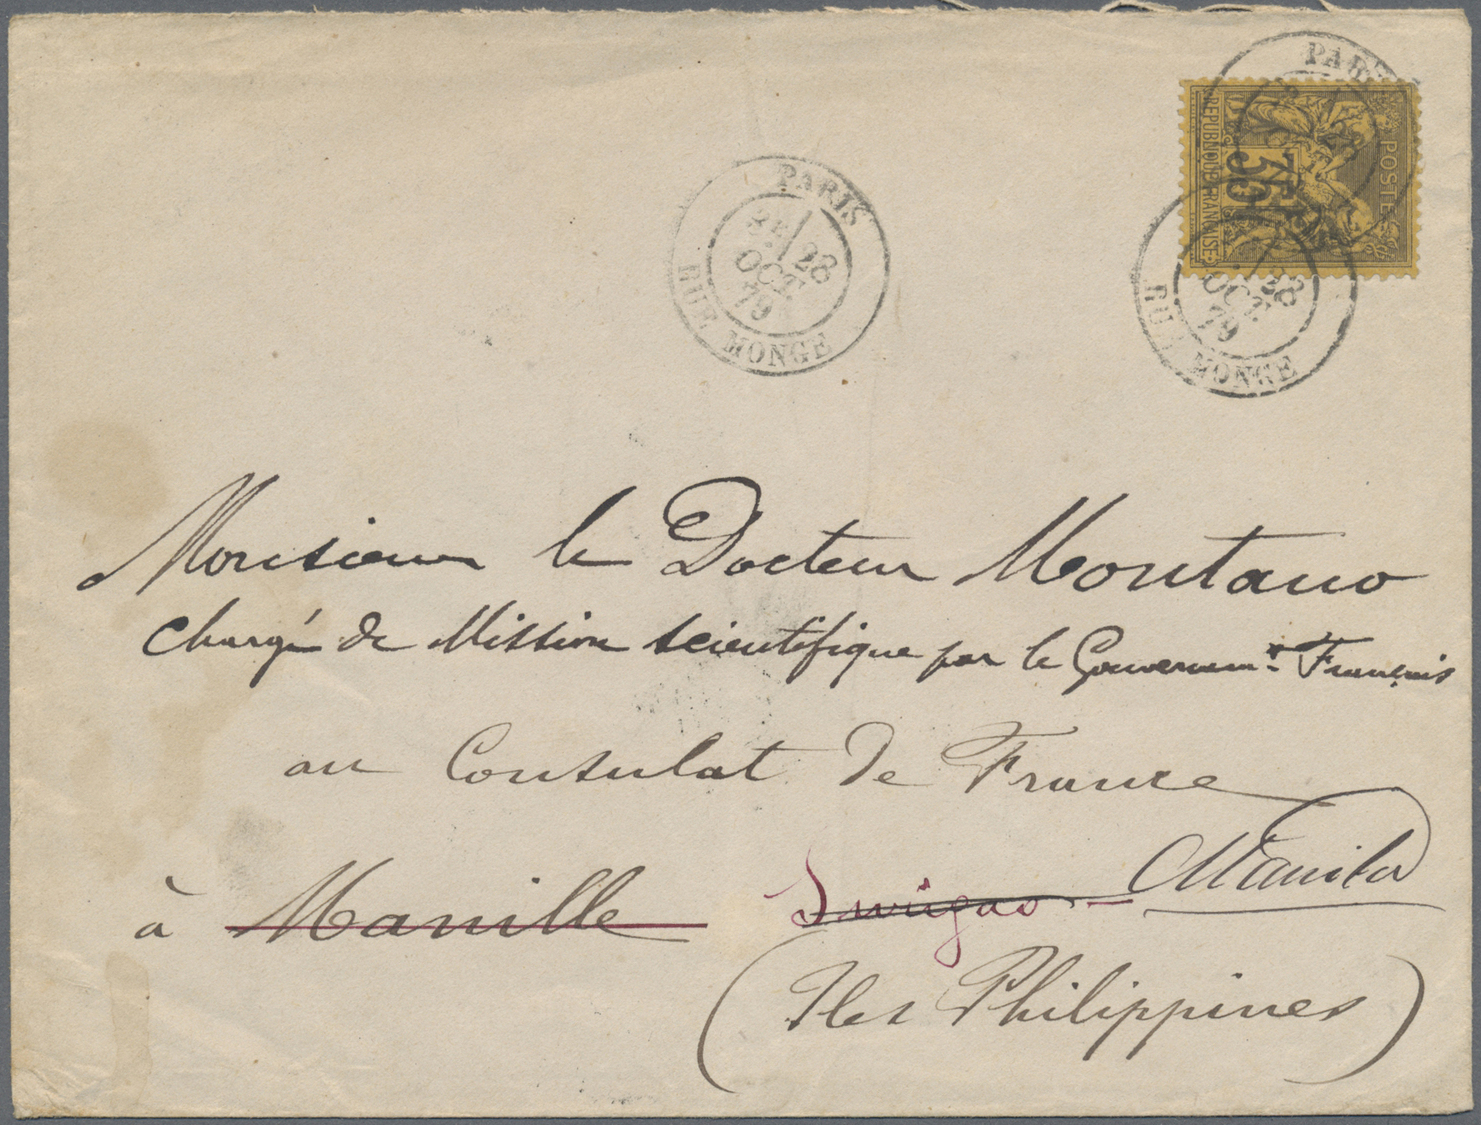 PARIS
POSTES
35
REPUBLIQUE FRANCAISE
PARIS
3E 28
OCT
79
RUE MONGE
28
OCT
79
RUE MONGE
Monsieur le Docteur Montano
Chargé de Mission scientifique par le Gouvernemt Français
au Consulat de France
à Manille Surigao - Manila
(Iles Philippines)